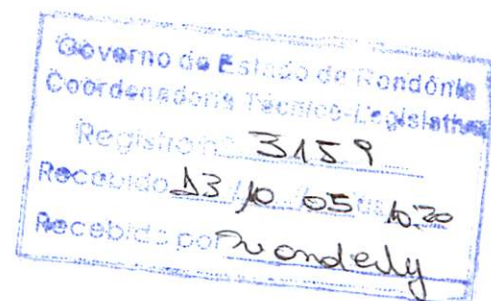 Governo do Estado de Rondônia
Coordenadoria Técnico-Legislativa
Registro nº 3159
Recebido 13/10/05 10:20
Recebido por Wanderly